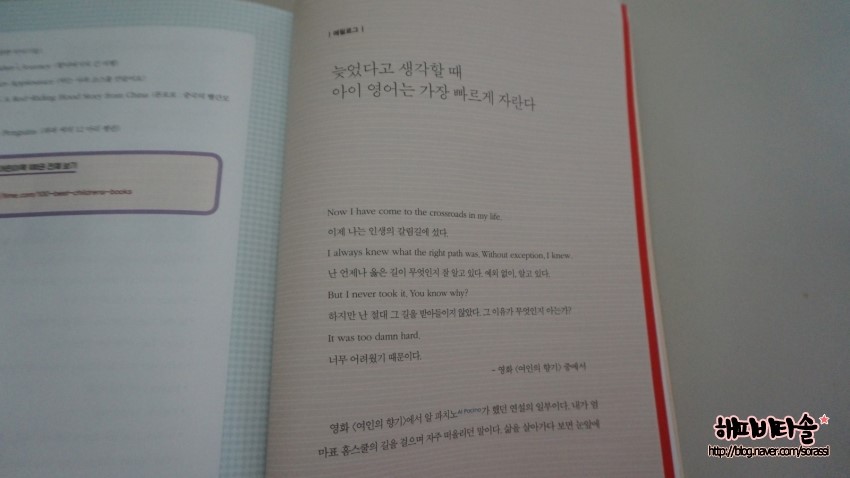 Penguins
time.com/100-best-childrens-books
| 에필로그 |
늦었다고 생각할 때
아이 영어는 가장 빠르게 자란다
Now I have come to the crossroads in my life.
이제 나는 인생의 갈림길에 섰다.
I always knew what the right path was. Without exception, I knew.
난 언제나 옳은 길이 무엇인지 잘 알고 있다. 예외 없이, 알고 있다.
But I never took it. You know why?
하지만 난 절대 그 길을 받아들이지 않았다. 그 이유가 무엇인지 아는가?
It was too damn hard.
너무 어려웠기 때문이다.
- 영화 〈여인의 향기〉 중에서
영화 〈여인의 향기〉에서 알 파치노Al Pacino가 했던 연설의 일부이다. 내가 엄
마표 홈스쿨의 길을 걸으며 자주 떠올리던 말이다. 삶을 살아가다 보면 눈앞에
해피비타솔
http://blog.naver.com/sorassi